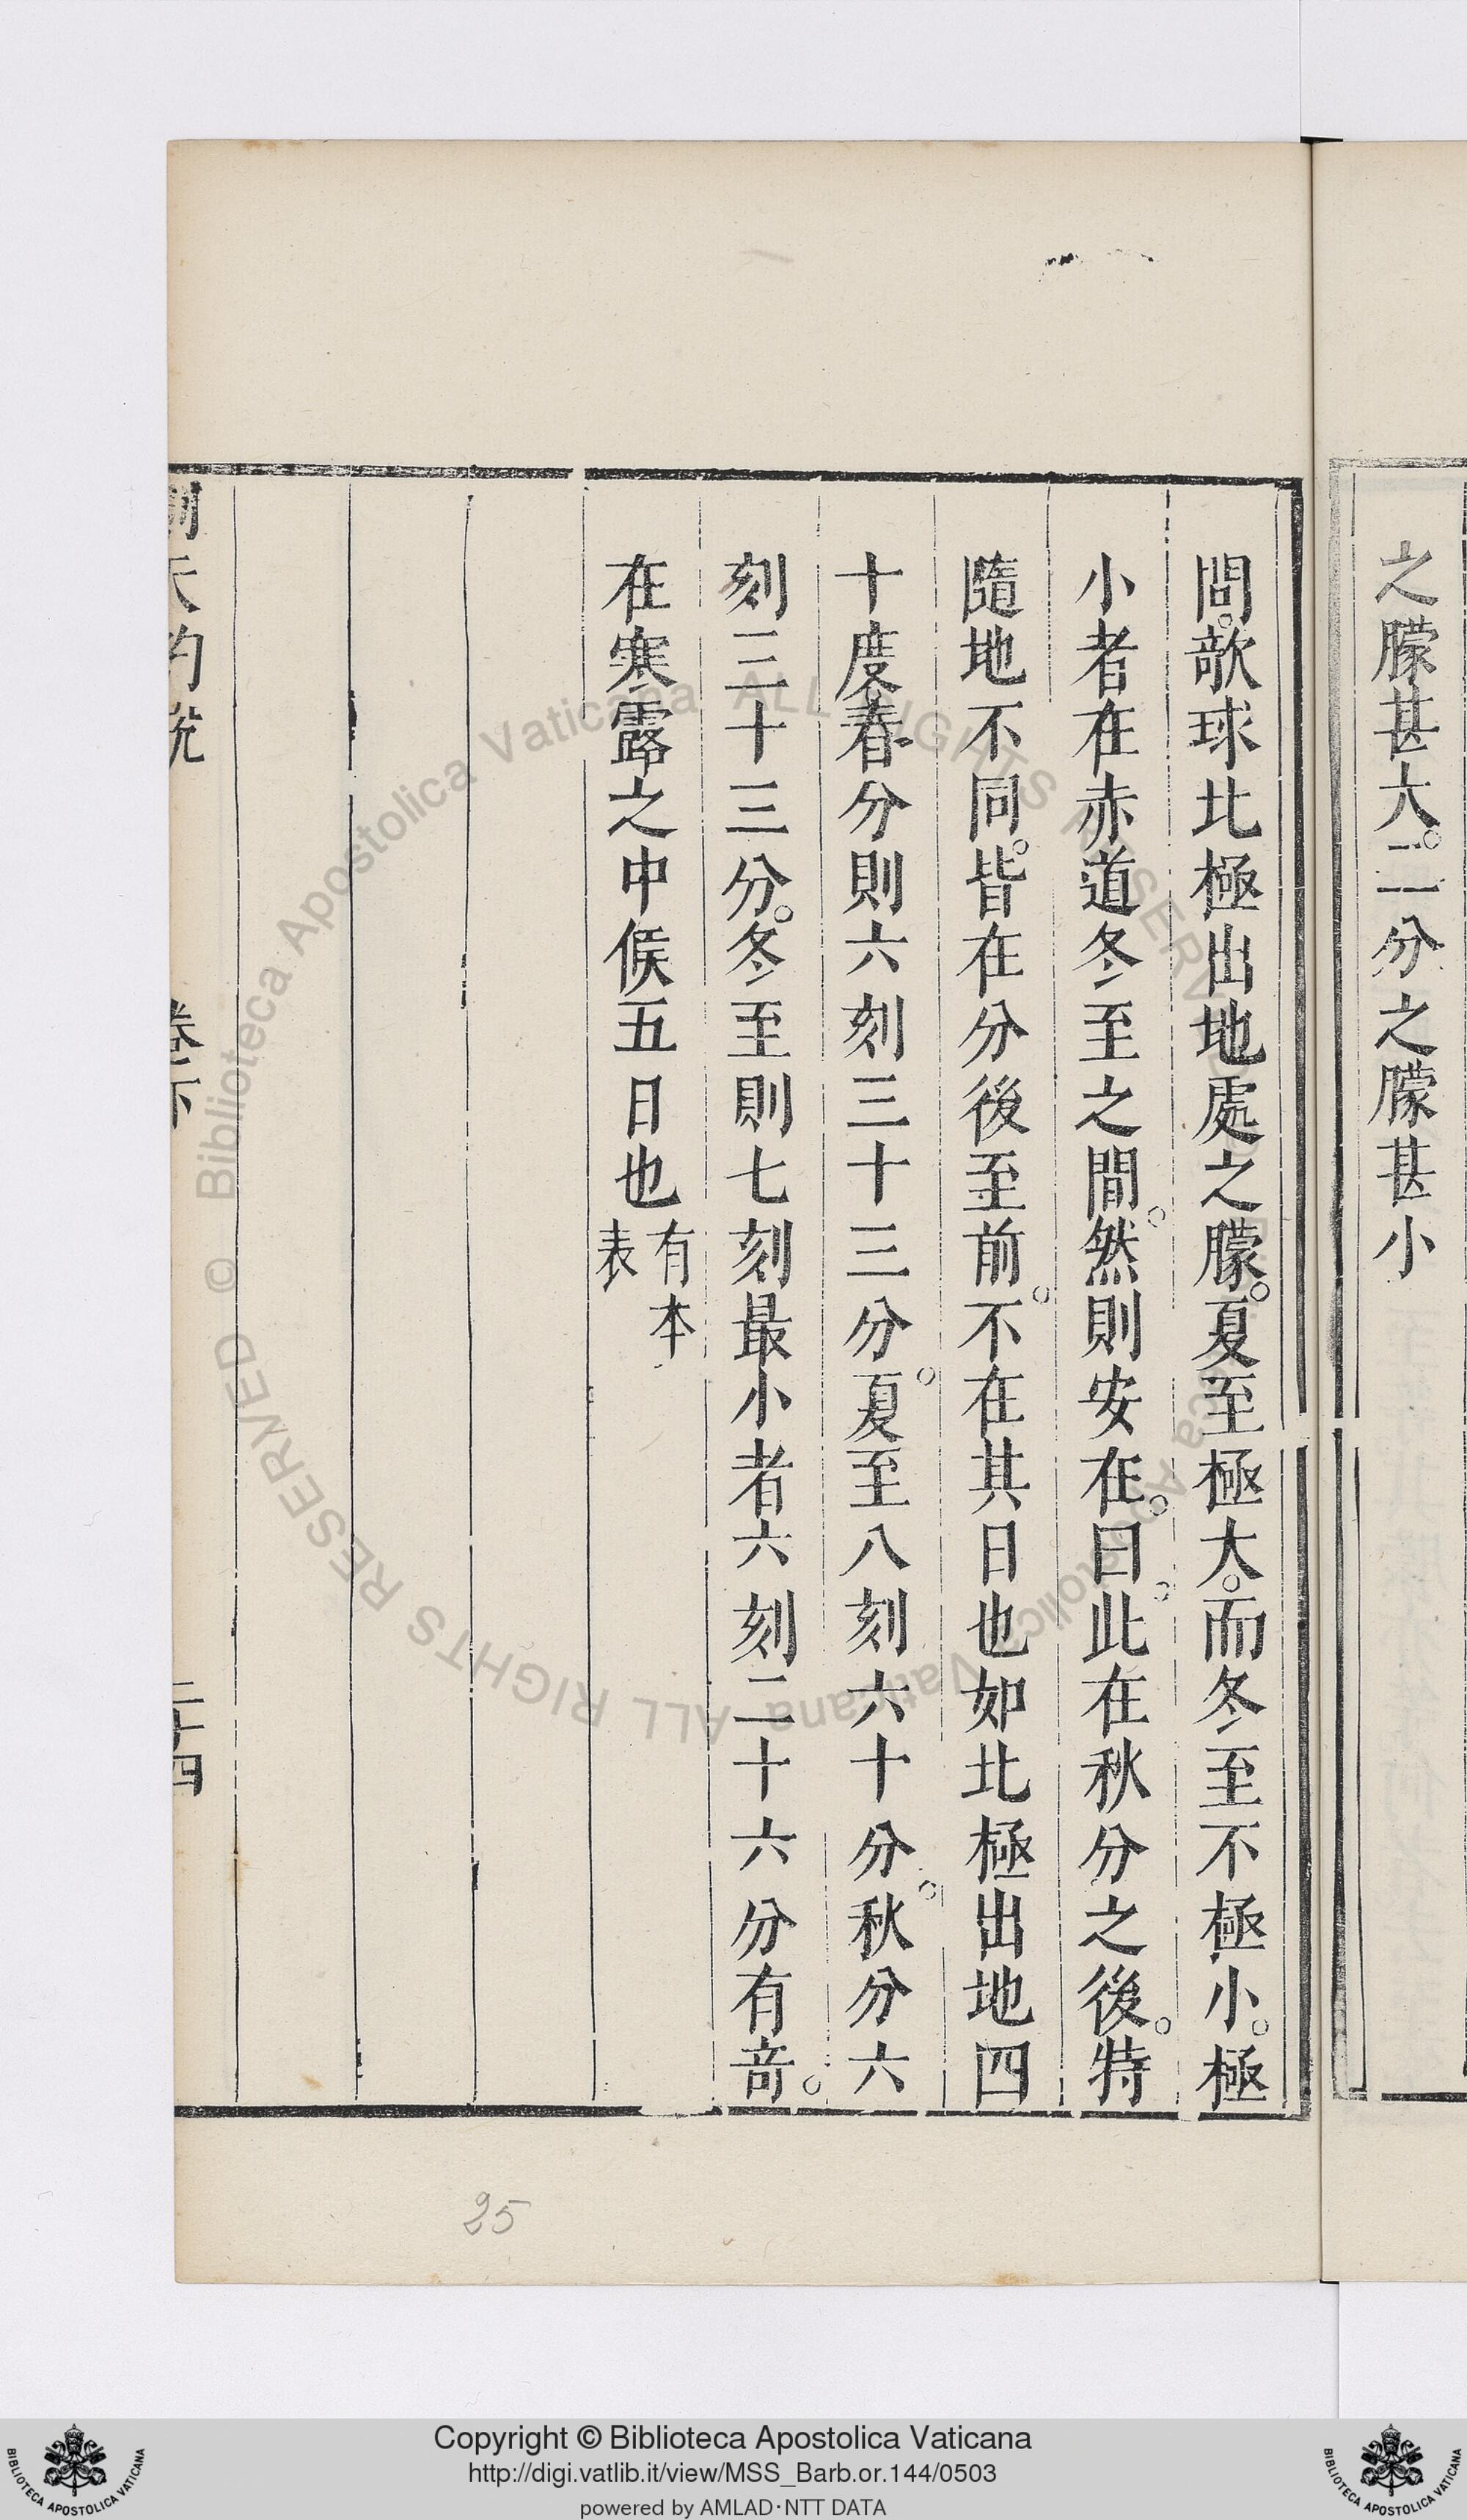 之朦甚大。二分之朦甚小
問。欹球北極出地處之朦。夏至極大。而冬至不極小。極
小者在赤道冬至之間。然則安在。曰。此在秋分之後。特
隨地不同。皆在分後至前。不在其日也如北極出地四
十度春分則六刻三十三分。夏至八刻六十分。秋分六
刻三十三分。冬至則七刻最小者六刻二十六分有竒。
在寒露之中候五日也有本
表
測天約說 卷下 二十四
25
© Biblioteca Apostolica Vaticana ALL RIGHTS RESERVED
Copyright © Biblioteca Apostolica Vaticana
http://digi.vatlib.it/view/MSS_Barb.or.144/0503
powered by AMLAD·NTT DATA
BIBLIOTECA APOSTOLICA VATICANA
BIBLIOTECA APOSTOLICA VATICANA